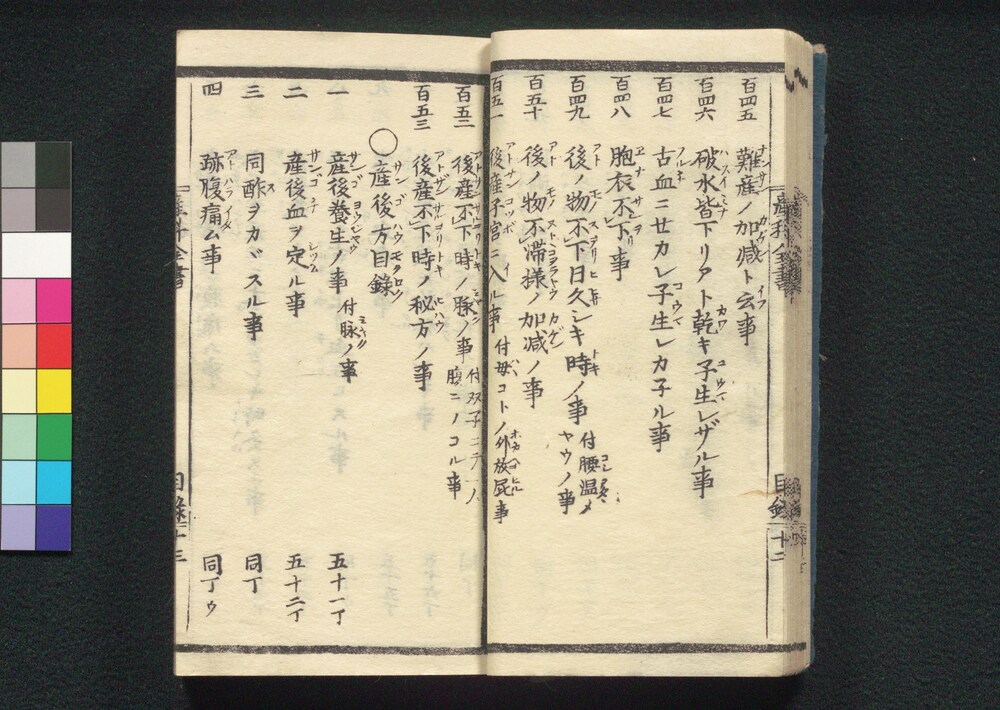 産科全書
目録
十二
百四五 難産ノ加減ト云事
百四六 破水皆下リアト乾キ子生レザル事
百四七 古血ニせカレ子生レカ子ル事
百四八 胞衣不下事
百四九 後ノ物不下日久シキ時ノ事 付腰温メヤウノ事
百五十 後ノ物不滞様ノ加減ノ事
百五一 後産子宮ニ入ル事 付母コトノ外放屁事
百五二 後産不下時ノ脉ノ事 付双子ニテ一ノ腹ニノコル事
百五三 後産不下時ノ秘方ノ事
○産後方目録
一 産後養生ノ事 付脉ノ事 五十一丁
二 産後血ヲ定ル事 五十二丁
三 同酢ヲカヾスル事 同丁
四 跡腹痛ム事 同丁ウ
産科全書
目録
十三